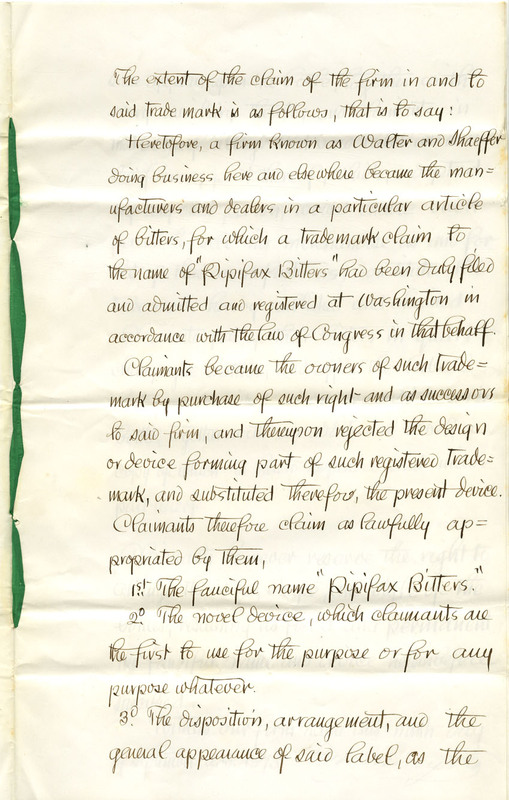 The extent of the claim of the firm in and to
said trade mark is as follows, that is to say:
Heretofore, a firm known as Walter and Shaeffer
doing business here and elsewhere became the man=
ufacturers and dealers in a particular article
of bitters, for which a trademark claim to
the name of "Pipifax Bitters" had been duly filed
and admitted and registered at Washington in
accordance with the law of Congress in that behalf.
Claimants became the owners of such trade=
mark by purchase of such right and as successors
to said firm, and thereupon rejected the design
or device forming part of such registered trade=
mark, and substituted therefor, the present device.
Claimants therefore claim as lawfully ap=
propriated by them,
1st The fanciful name "Pipifax Bitters."
2d The novel device, which claimants are
the first to use for the purpose or for any
purpose whatever.
3d The disposition, arrangement, and the
general appearance of said label, as the